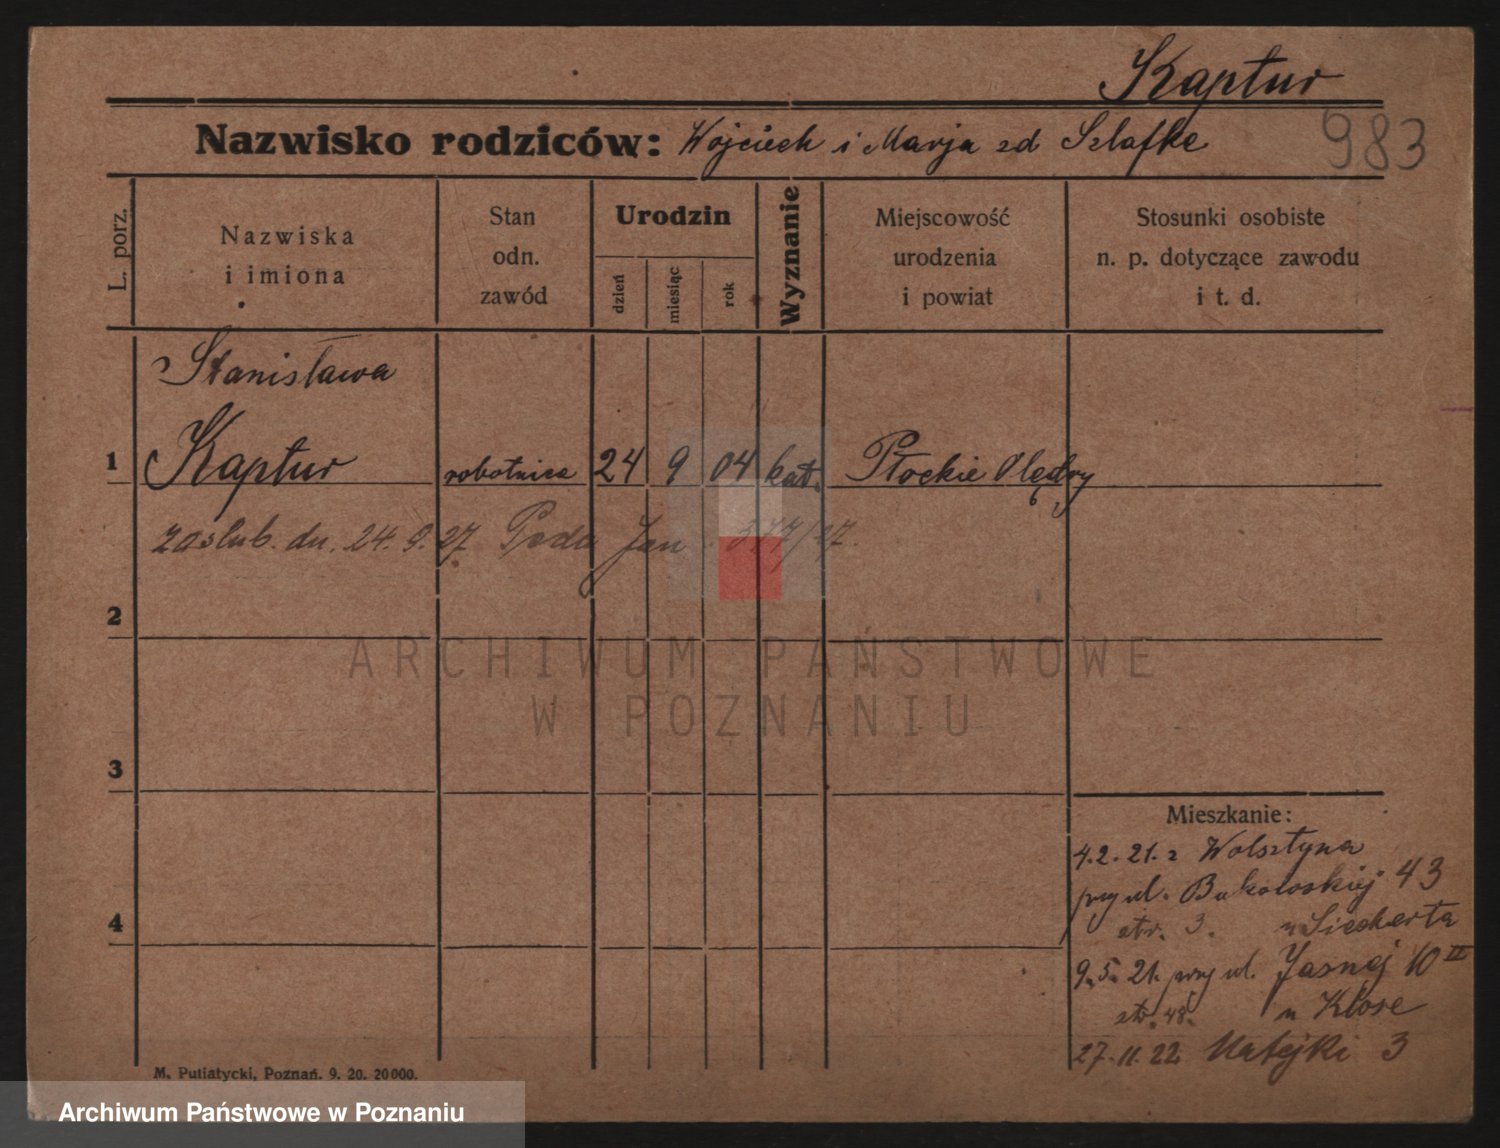 Kaptur
Nazwisko rodziców: Wojciech i Marja zd Szlafke
983
L. porz.
Nazwiska
i imiona
Stan
odn.
zawód
Urodzin
dzień
miesiąc
rok
Wyznanie
Miejscowość
urodzenia
i powiat
Stosunki osobiste
n. p. dotyczące zawodu
i t. d.
Stanisława
1 Kaptur robotnica 24 9 04 kat. Płockie Olędry
zaślub. dn. 24. 9. 27 Jan 377/27.
2
ARCHIWUM PAŃSTWOWE
W POZNANIU
3
Mieszkanie:
4.2.21. z Wolsztyna
przy ul. Bukowskiej 43
4
str. 3. u Sieckerta
9.5.21. przy ul. Jasnej 10 III
str. 48. u Klose
27.11.22 Matejki 3
M. Putiatycki, Poznań. 9. 20. 20000.
Archiwum Państwowe w Poznaniu